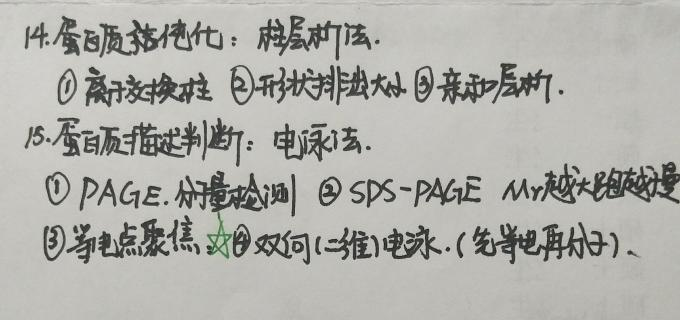 14.蛋白质纯化：柱层析法.
①离子交换柱 ②形状排出大小 ③亲和层析.
15.蛋白质描述判断：电泳法.
① PAGE.分子量检测 ② SDS-PAGE Mr越大跑越慢
③等电点聚焦.☆④双向(二维)电泳.(先等电再分子).